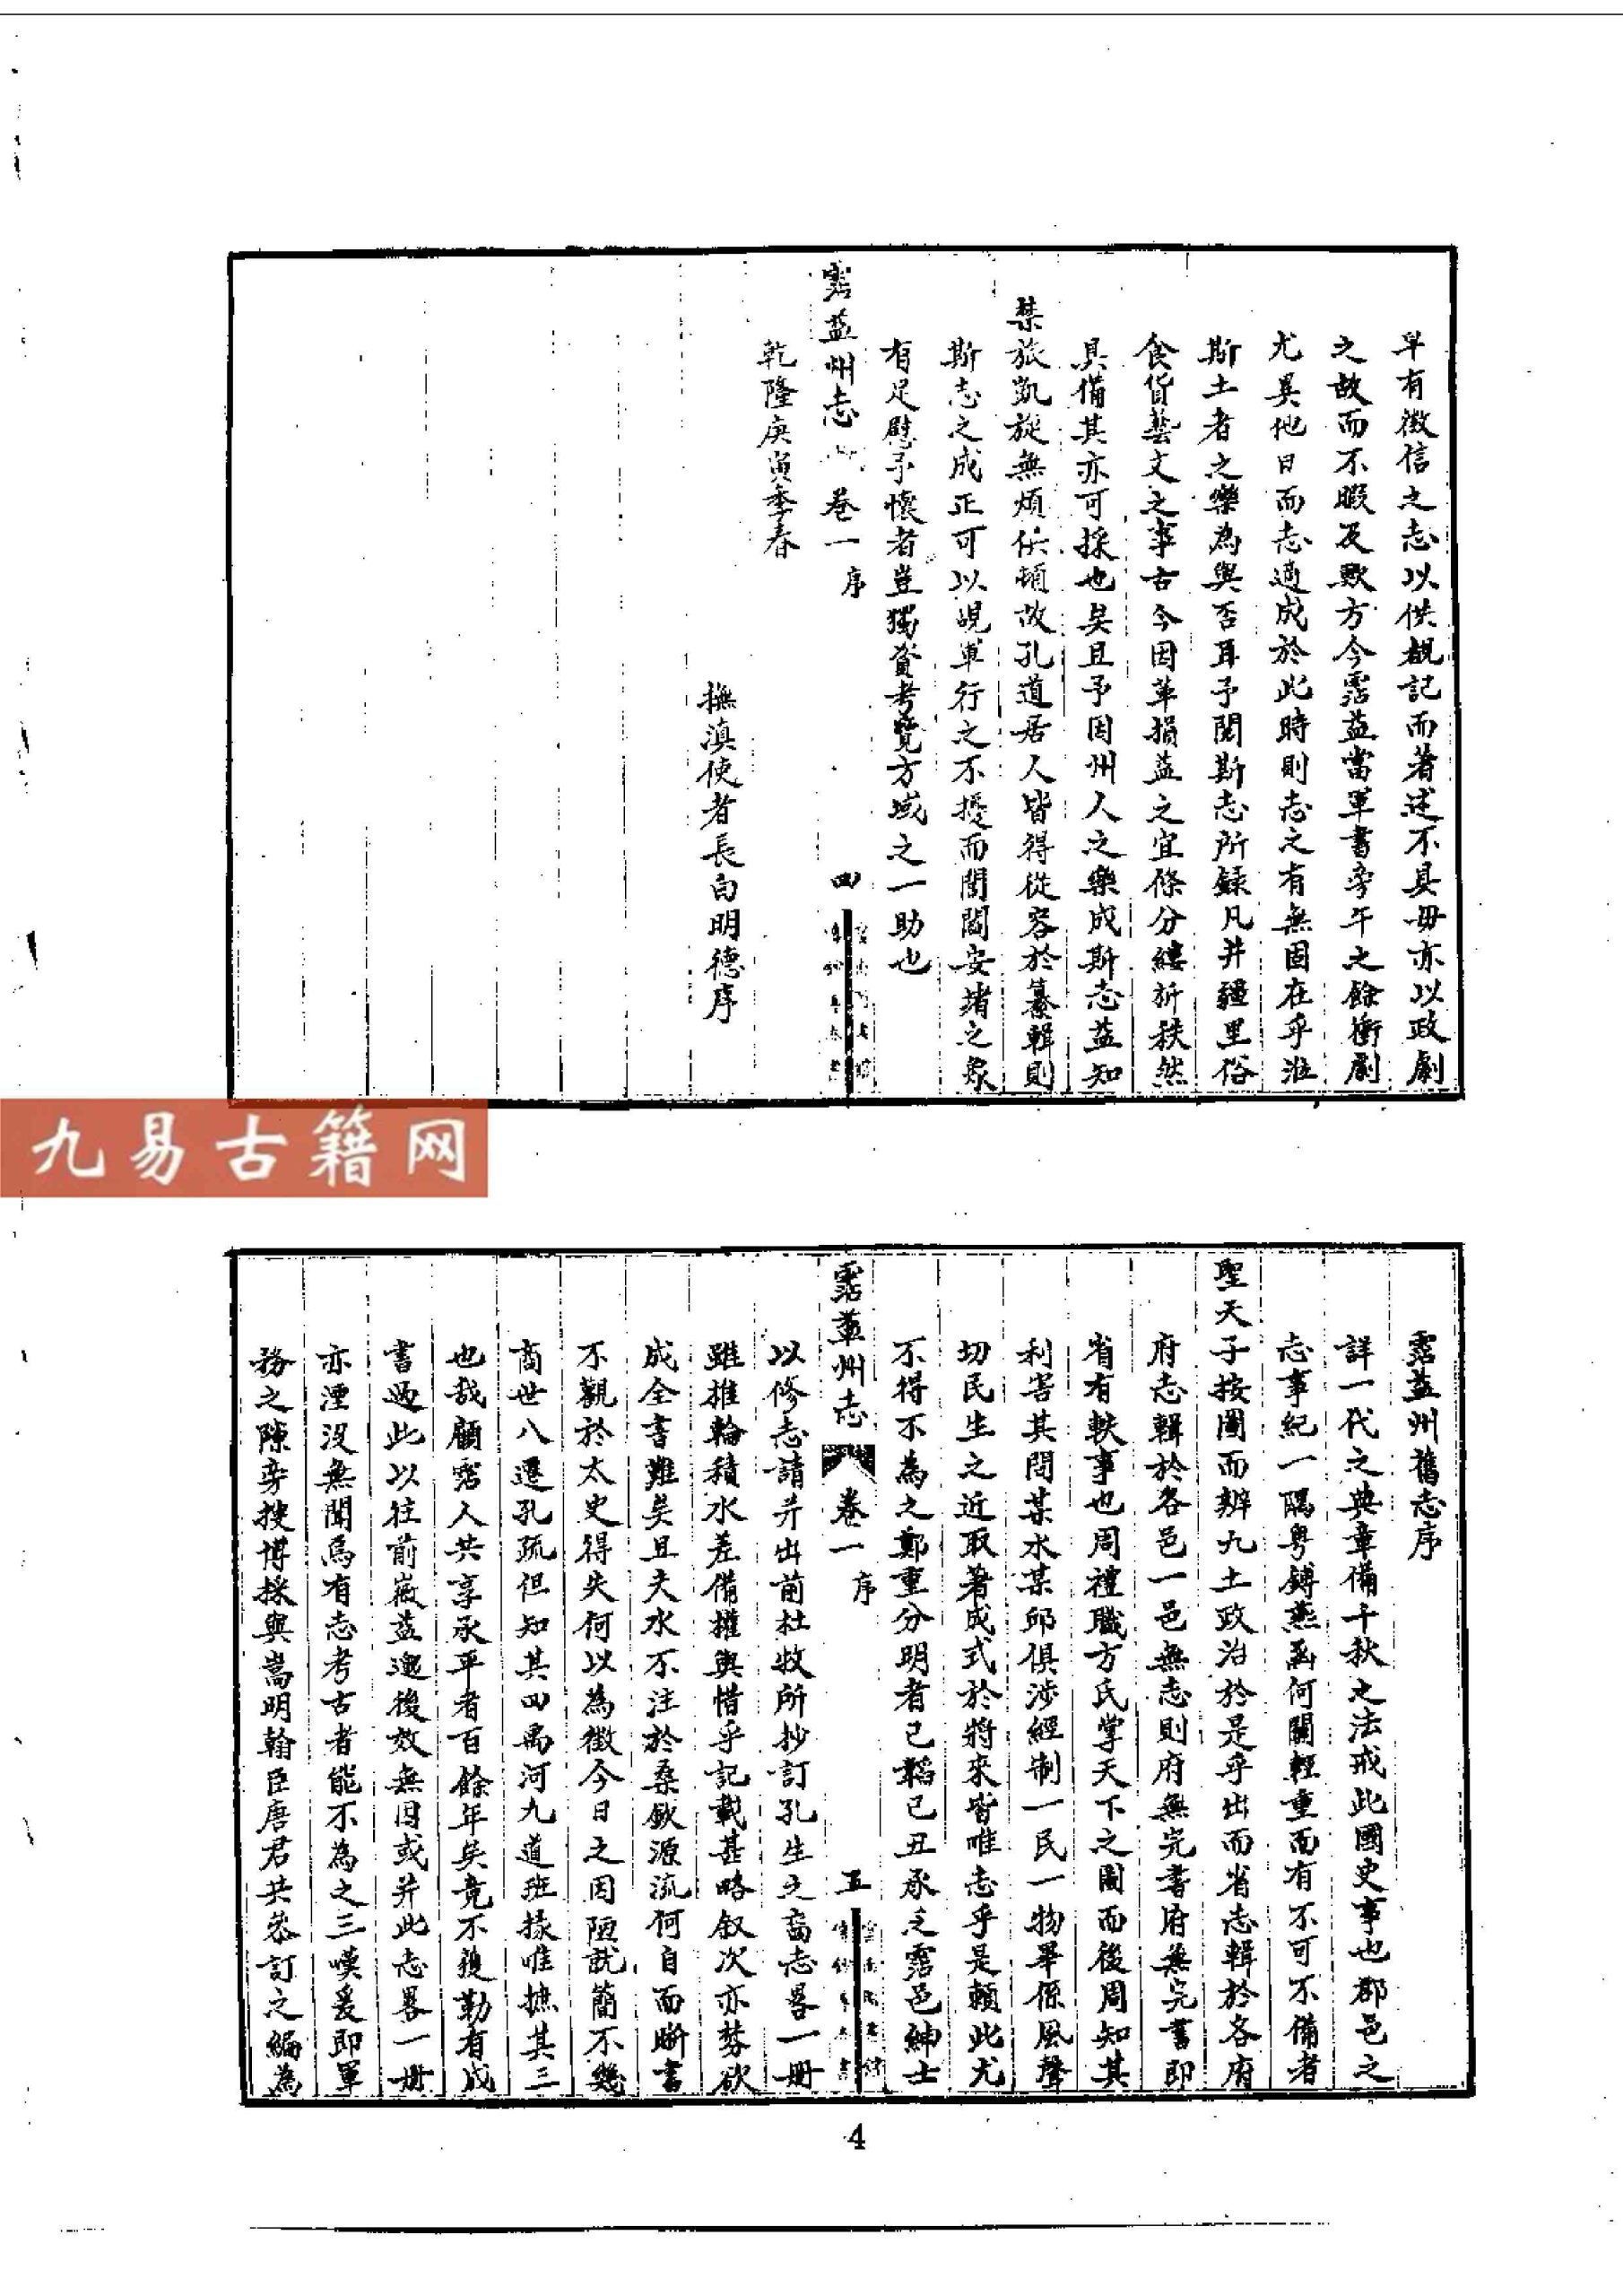 罕有徵信之志以供覩記而著述不具毋亦以政劇
之故而不暇及歟方今霑益當軍書旁午之餘衝劇
尤異他日而志適成於此時則志之有無固在乎涖
斯土者之樂為與否耳予閱斯志所錄凡井疆里俗
食貨藝文之事古今因革損益之宜條分縷析秩然
具備其亦可採也矣且予因州人之樂成斯志益知
禁旅凱旋無煩供頓故孔道居人皆得從容於纂輯則
斯志之成正可以覘軍行之不擾而閭閻安堵之象
有足慰予懷者豈獨資考覽方域之一助也
霑益州志 卷一 序 四
乾隆庚寅季春
撫滇使者長白明德序
九易古籍网
霑益州舊志序
詳一代之典章備千秋之法戒此國史事也郡邑之
志事紀一隅粤鎛燕函何關輕重而有不可不備者
聖天子按圖而辨九土政治於是乎出而省志輯於各府
府志輯於各邑一邑無志則府無完書府無完書即
省有軼事也周禮職方氏掌天下之圖而後周知其
利害其間某水某邱俱涉經制一民一物畢係風聲
切民生之近取著成式於將來皆唯志乎是賴此尤
不得不為之鄭重分明者已韜己丑承乏霑邑紳士
霑益州志 卷一 序 五
以修志請并出前杜牧所抄訂孔生之畜志畧一冊
雖推輪積水差備權輿惜乎記載甚略叙次亦棼欲
成全書難矣且夫水不注於桑欽源流何自而晰書
不觀於太史得失何以為徵今日之因陋就簡不幾
商世八遷孔疏但知其四禹河九道班掾唯摭其三
也哉顧霑人共享承平者百餘年矣竟不獲勒有成
書過此以往前嶶益邈後效無因或并此志畧一冊
亦湮没無聞焉有志考古者能不為之三嘆爰即軍
務之隙旁搜博採與嵩明翰臣唐君共叅訂之編為
4